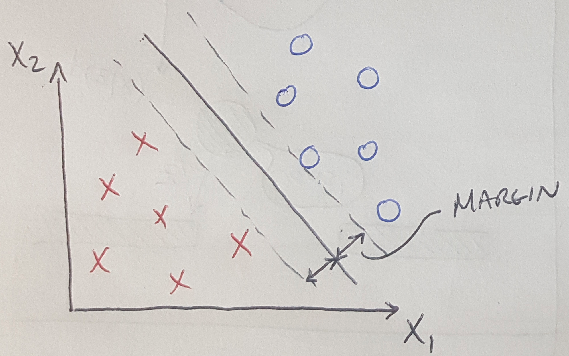 X2
MARGIN
X1